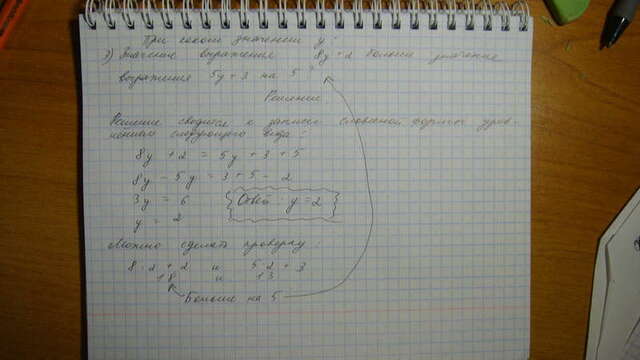 При каком значении y:
3) Значение выражения 8y+2 больше значения
выражения 5y+3 на 5?
Решение
Решение сводится к записи словесной формы урав-
нением следующего вида:
8y + 2 = 5y + 3 + 5
8y - 5y = 3 + 5 - 2
3y = 6
Ответ: y = 2
y = 2
Можно сделать проверку:
8 · 2 + 2 и 5 · 2 + 3
18 и 13
Больше на 5